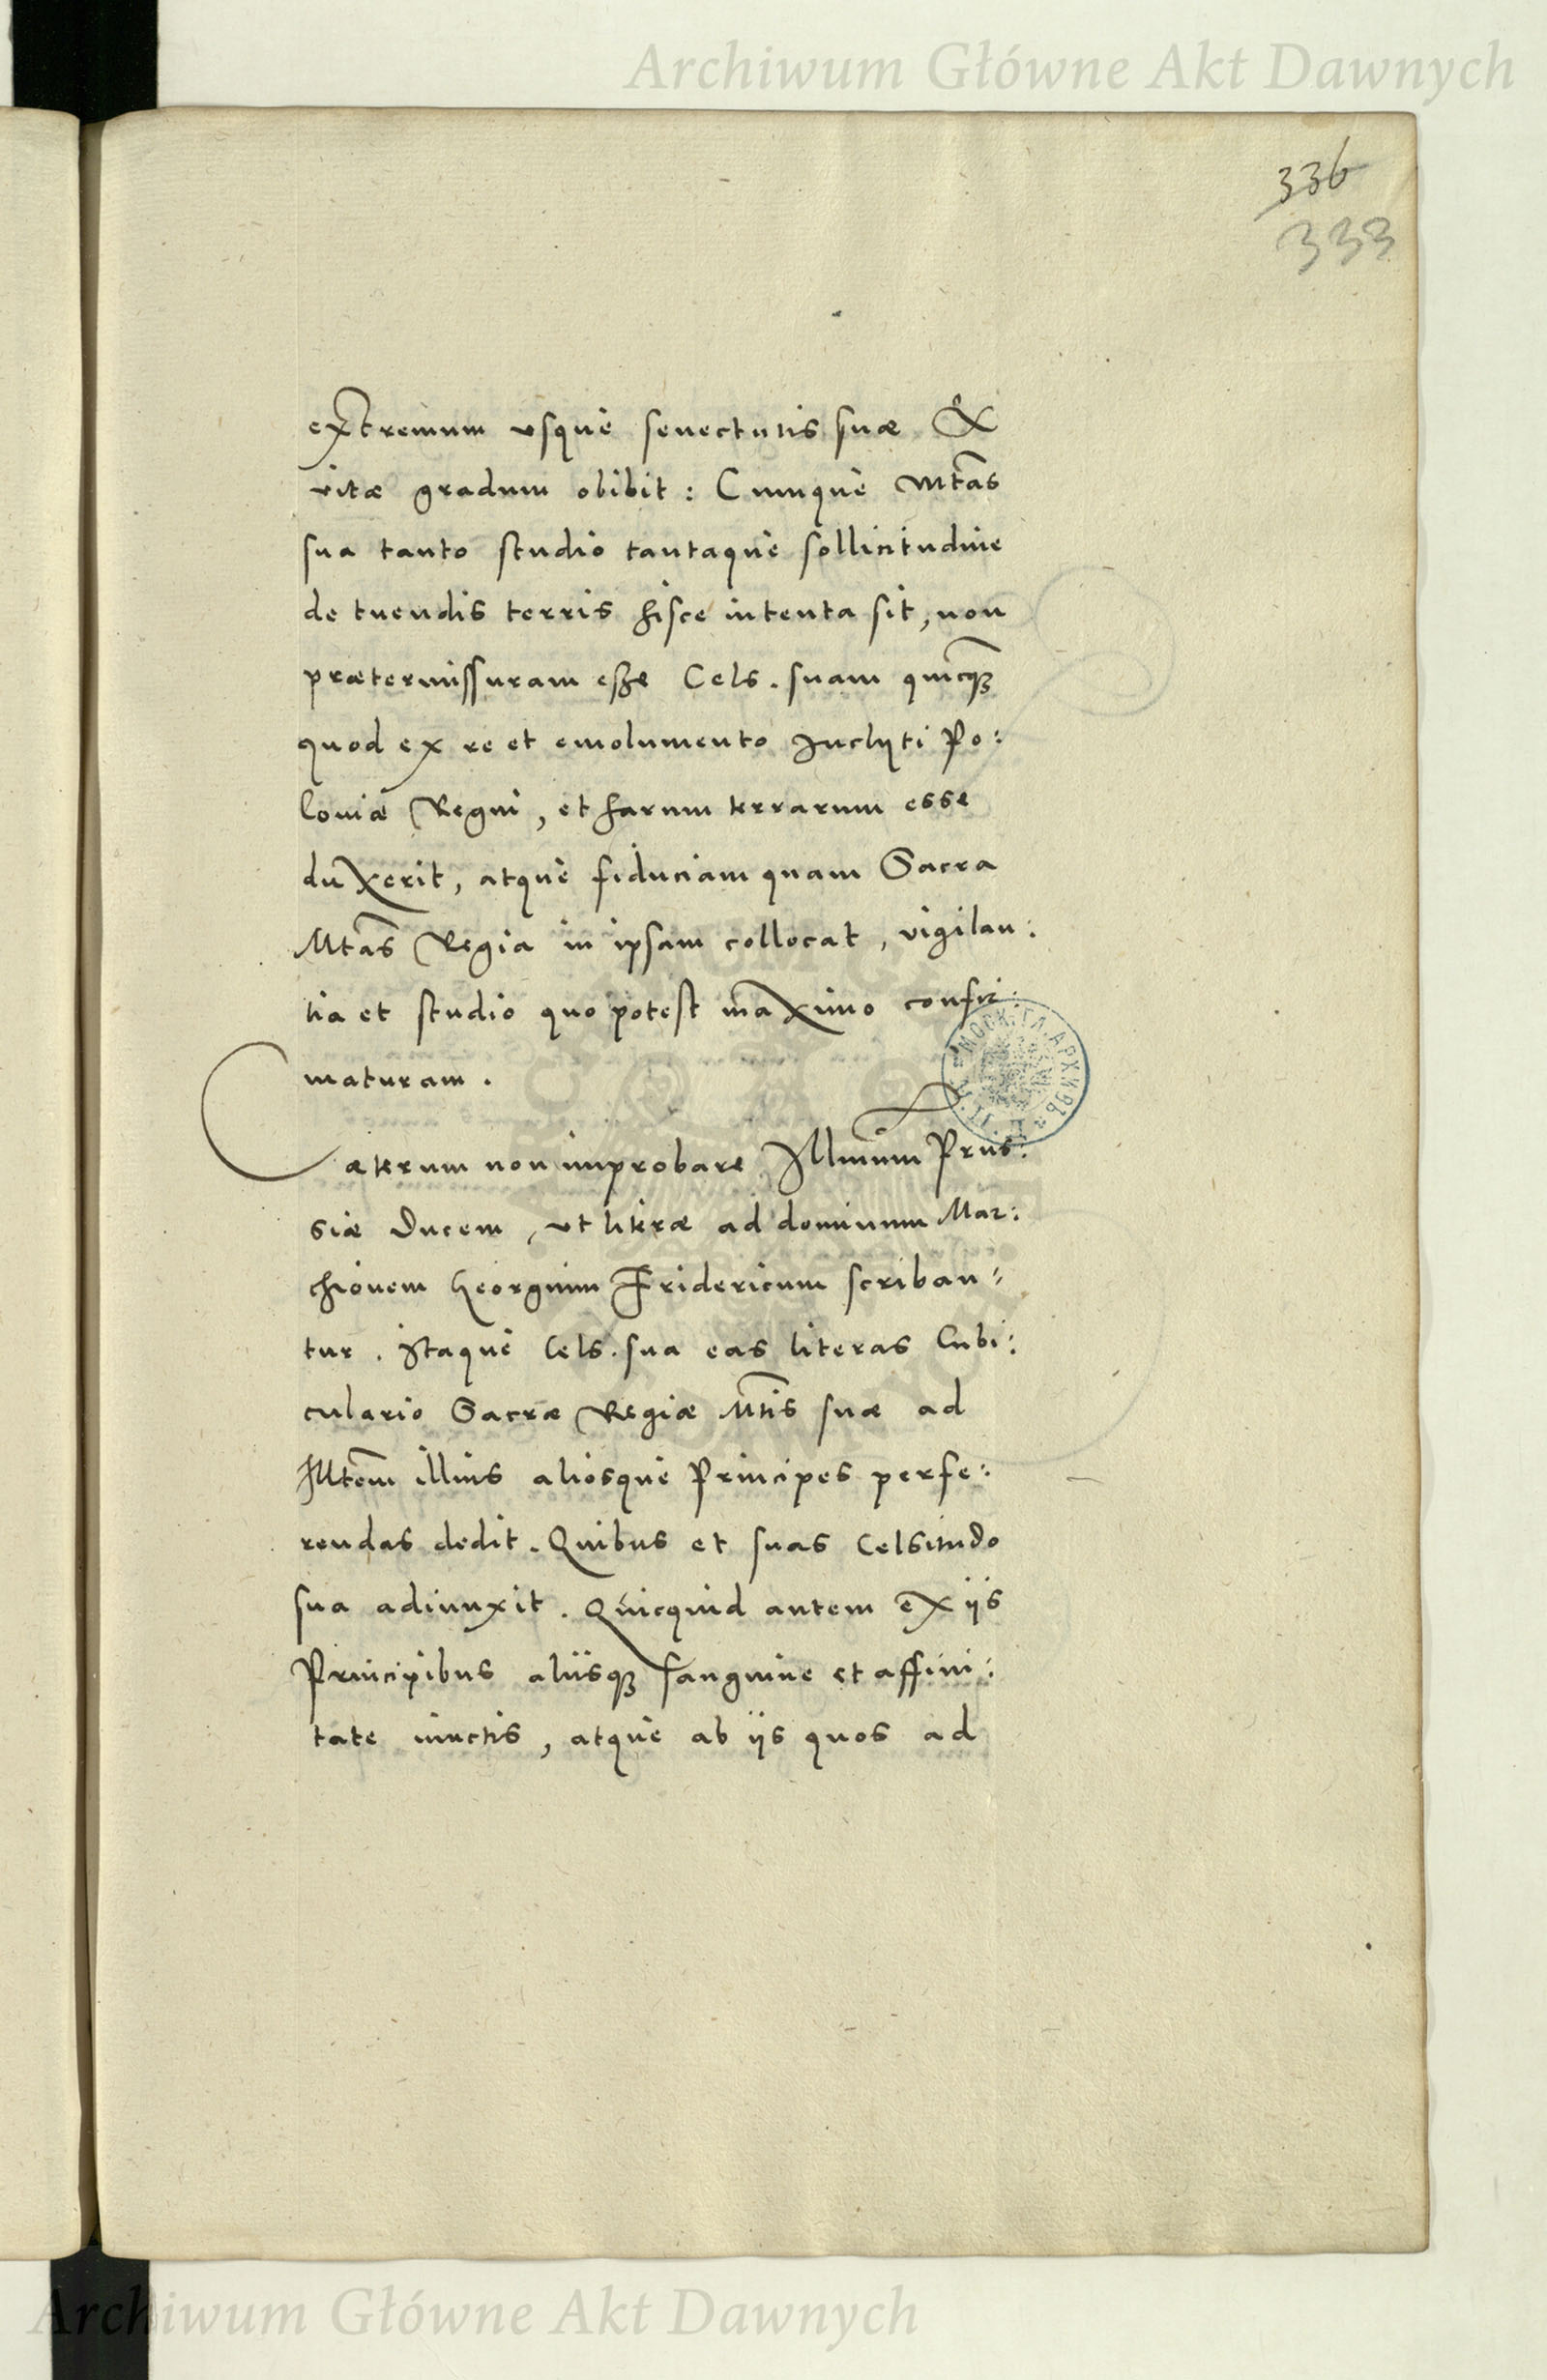 Archiwum Główne Akt Dawnych
336
333
extremum vsque senectutis suæ &
vitæ gradum obibit: Cumque Mtas
sua tanto studio tantaque sollicitudine
de tuendis terris hisce intenta sit, non
prætermissuram esse Cels. suam quicqz
quod ex re et emolumento Inclyti Po:
loniæ Regni, et harum terrarum esse
duxerit, atque fiduciam quam Sacra
Mtas Regia in ipsam collocat, vigilan:
tia et studio quo potest maximo confir:
maturam.
Cæterum non improbare Illmum Prus:
siæ Ducem, vt literæ ad dominum Mar:
chionem Georgium Fridericum scriban:
tur. Itaque Cels. sua eas literas Cubi:
culario Sacræ Regiæ Mtis suæ ad
Illtem illius aliosque Principes perfe:
rendas dedit. Quibus et suas Celsitudo
sua adiunxit. Quicquid autem ex iis
Principibus aliisqz sanguine et affini:
tate iunctis, atque ab iis quos ad
МОСК. ГЛ. АРХИВЪ
Archiwum Główne Akt Dawnych